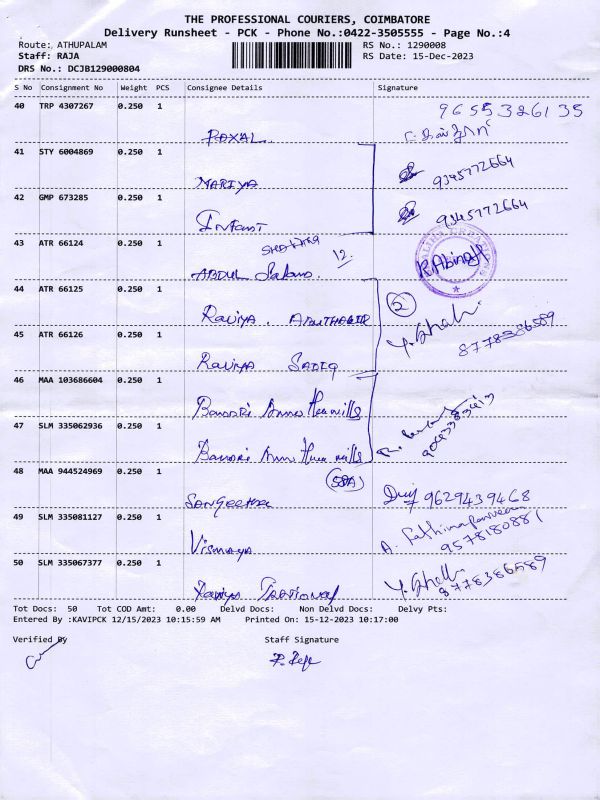 THE PROFESSIONAL COURIERS, COIMBATORE
Delivery Runsheet - PCK - Phone No.:0422-3505555 - Page No.:4
Route: ATHUPALAM RS No.: 1290008
Staff: RAJA RS Date: 15-Dec-2023
DRS No.: DCJB129000804
S No Consignment No Weight PCS Consignee Details Signature
40 TRP 4307267 0.250 1 9655326135
ROXAL
41 STY 6004869 0.250 1
MARIYA 9345772664
42 GMP 673285 0.250 1
Infant 9345772664
43 ATR 66124 0.250 1
12.
ABDUL Salam. R.Abinaya
44 ATR 66125 0.250 1 2
Raviya. ABUTHAGIR
45 ATR 66126 0.250 1 8778386589
Raviya SADIQ
46 MAA 103686604 0.250 1
Bannari Amma
47 SLM 335062936 0.250 1
Bannari Amma mills
48 MAA 944524969 0.250 1
Sangeetha 9629439468
49 SLM 335081127 0.250 1 A. Fathima Parveen
Vismaya 9578180881
50 SLM 335067377 0.250 1 8778386589
Raviya
Tot Docs: 50 Tot COD Amt: 0.00 Delvd Docs: Non Delvd Docs: Delvy Pts:
Entered By :KAVIPCK 12/15/2023 10:15:59 AM Printed On: 15-12-2023 10:17:00
Verified By Staff Signature